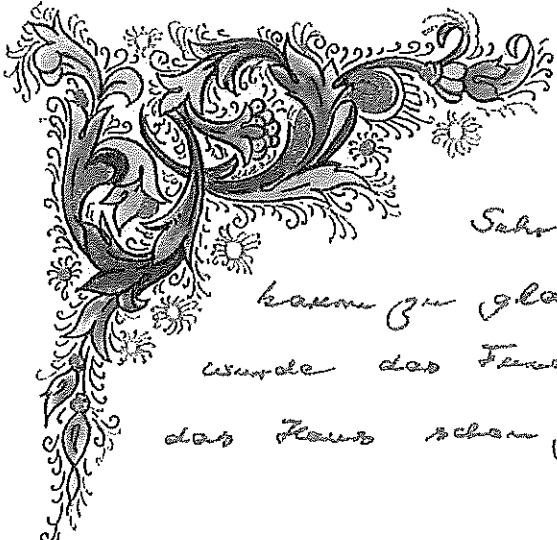 Sehr
kaum zu gla
wurde das Fun
das Haus schon